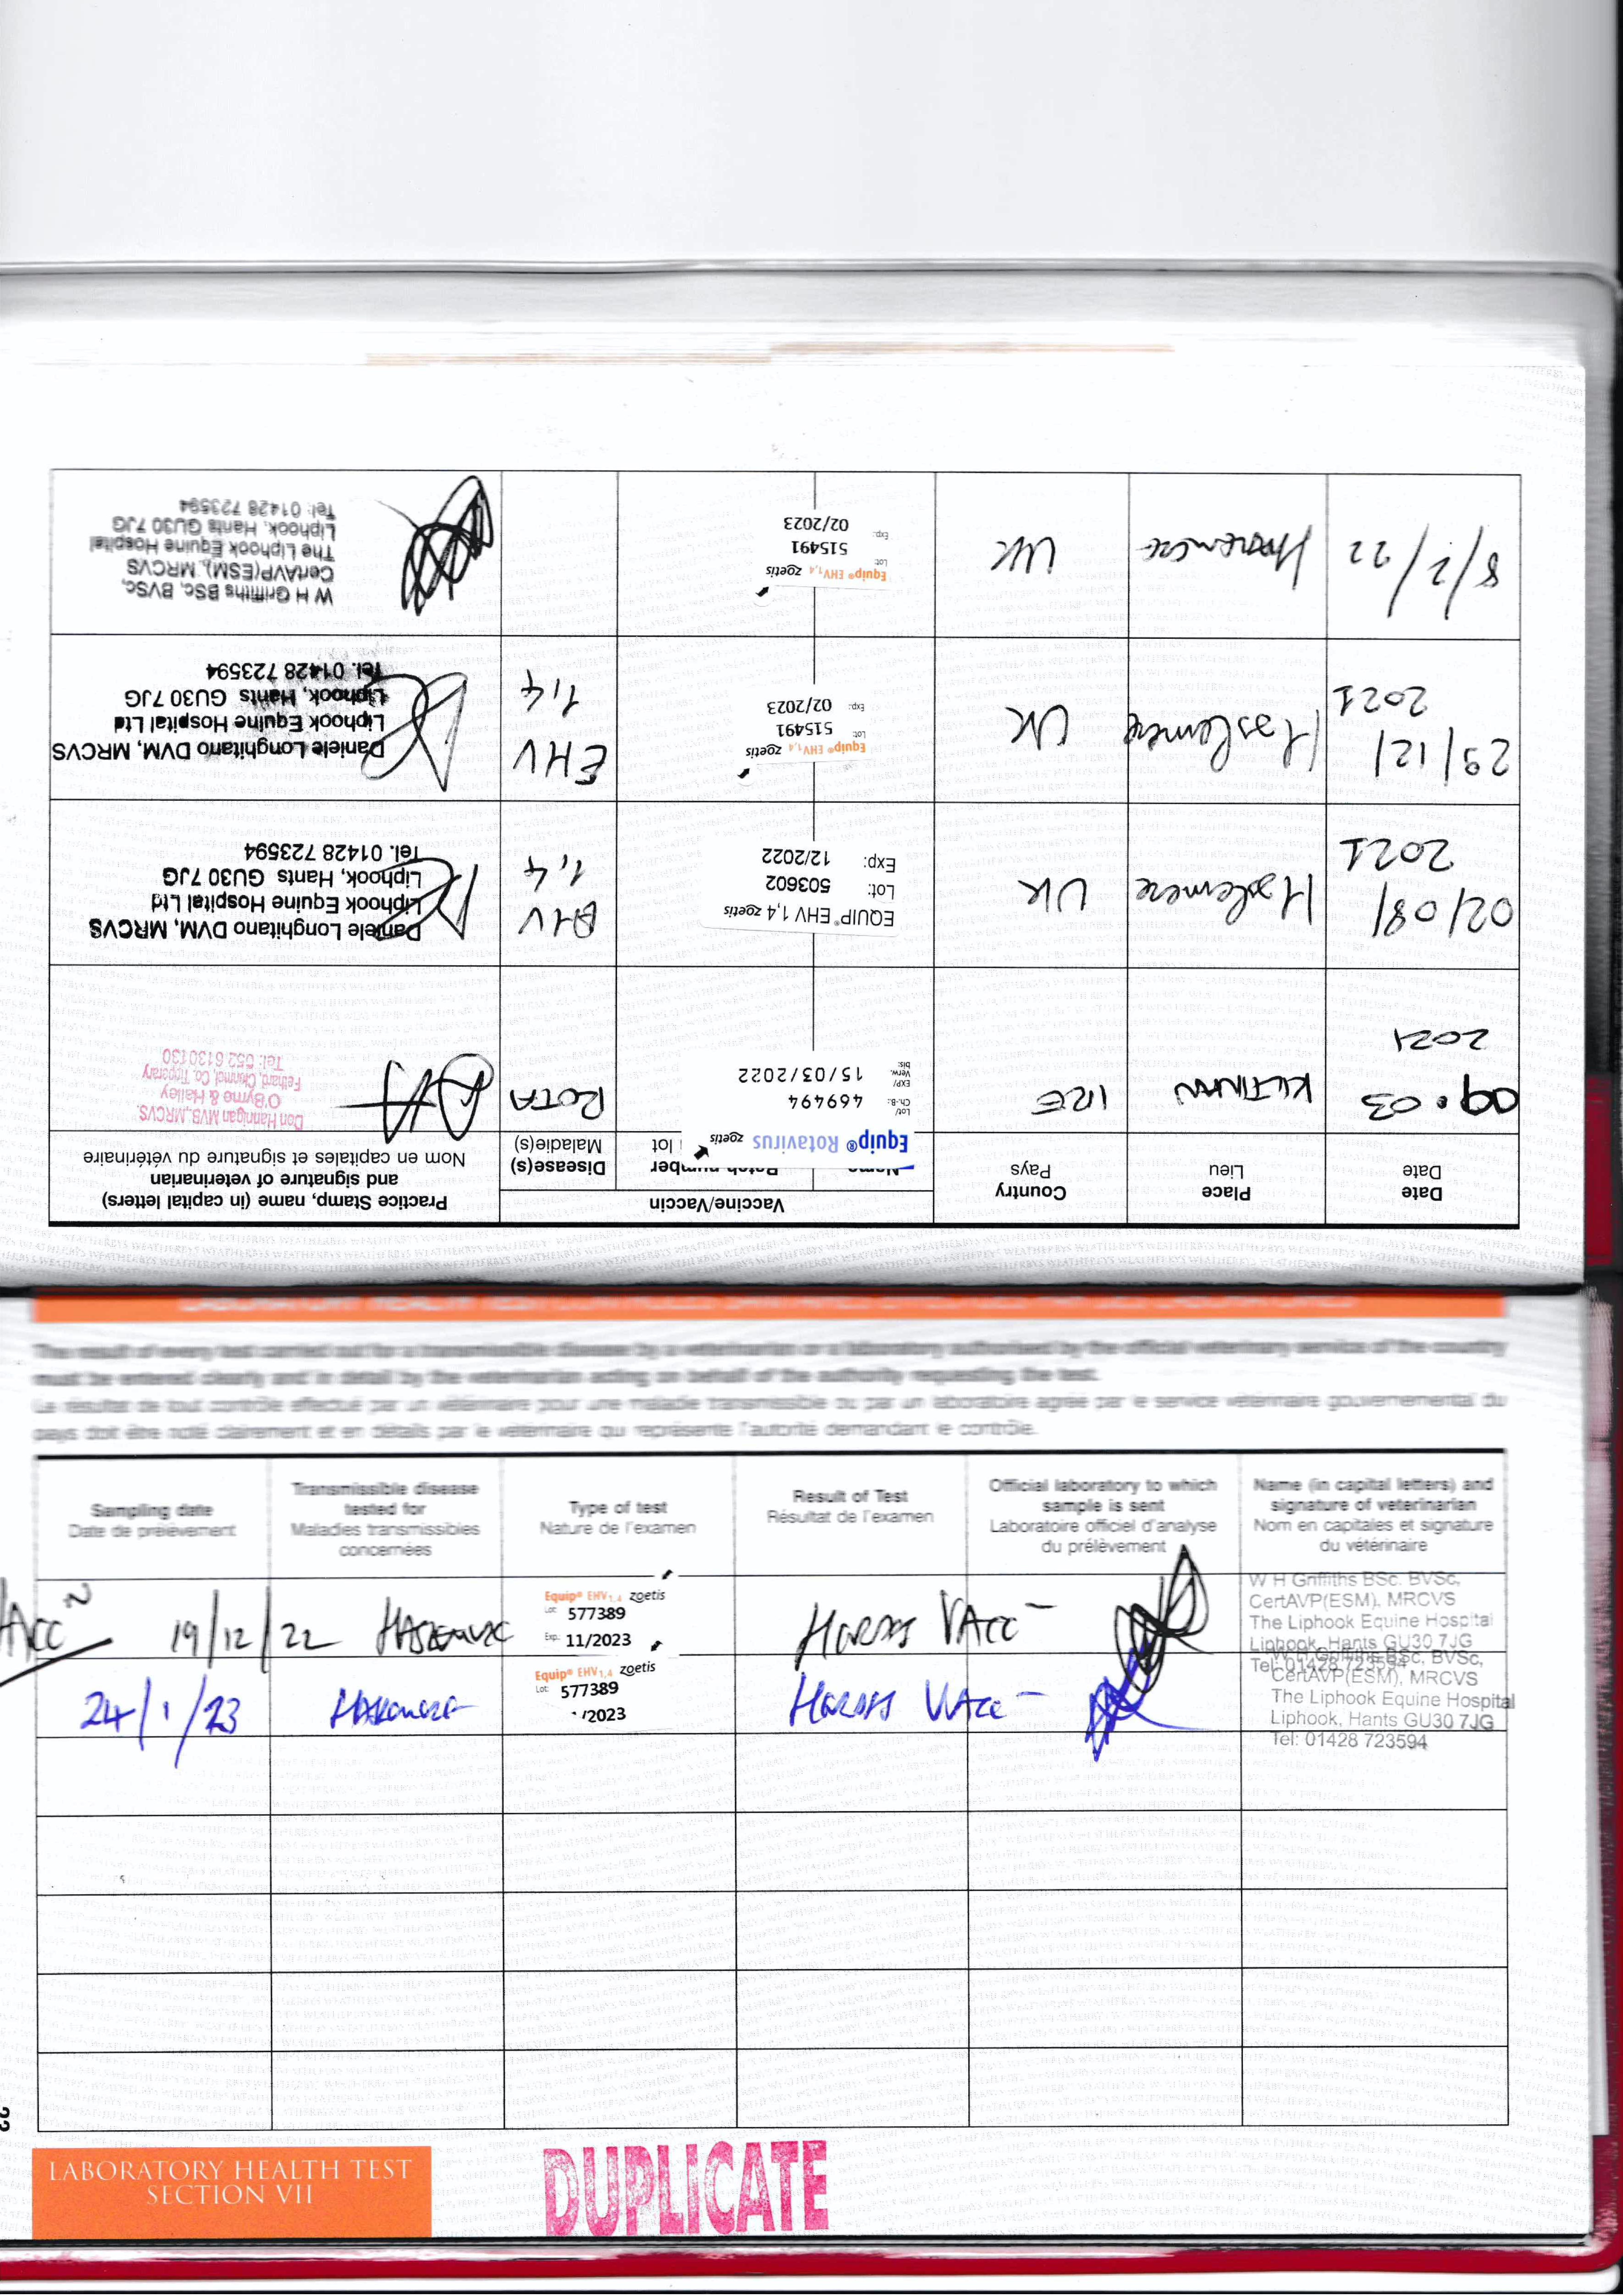 Date
Date
Place
Lieu
Country
Pays
Vaccine/Vaccin
Name
Batch number
lot
Disease(s)
Maladie(s)
Practice Stamp, name (in capital letters)
and signature of veterinarian
Nom en capitales et signature du vétérinaire
09.03
2021
KILTINAN
IRE
Equip® Rotavirus zoetis
Lot/
Ch.-B.: 469494
EXP/
Verw.
bis: 15/03/2022
ROTA
Don Hannigan MVB, MRCVS.
O'Byrne & Halley
Fethard, Clonmel, Co. Tipperary
Tel: 052 6130130
02/08/
2021
Haslemere
UK
EQUIP® EHV 1,4 zoetis
Lot: 503602
Exp: 12/2022
EHV
1,4
Daniele Longhitano DVM, MRCVS
Liphook Equine Hospital Ltd
Liphook, Hants GU30 7JG
Tel. 01428 723594
29/12/
2021
Haslemere
UK
Equip® EHV1,4 zoetis
Lot: 515491
Exp: 02/2023
EHV
1,4
Daniele Longhitano DVM, MRCVS
Liphook Equine Hospital Ltd
Liphook, Hants GU30 7JG
Tel. 01428 723594
8/2/22
UK
Equip® EHV1,4 zoetis
Lot: 515491
Exp: 02/2023
W H Griffiths BSc, BVSc,
CertAVP(ESM), MRCVS
The Liphook Equine Hospital
Liphook, Hants GU30 7JG
Tel: 01428 723594
The result of every test carried out for a transmissible disease by a veterinarian or a laboratory authorised by the official veterinary service of the country
must be entered clearly and in detail by the veterinarian acting on behalf of the authority requesting the test.
Le résultat de tout contrôle effectué par un vétérinaire pour une maladie transmissible ou par un laboratoire agréé par le service vétérinaire gouvernemental du
pays doit être noté clairement et en détails par le vétérinaire qui représente l'autorité demandant le contrôle.
Sampling date
Date de prélèvement
Transmissible disease
tested for
Maladies transmissibles
concernées
Type of test
Nature de l'examen
Result of Test
Résultat de l'examen
Official laboratory to which
sample is sent
Laboratoire officiel d'analyse
du prélèvement
Name (in capital letters) and
signature of veterinarian
Nom en capitales et signature
du vétérinaire
19/12/22
Equip® EHV1,4 zoetis
Lot: 577389
Exp: 11/2023
W H Griffiths BSc. BVSc,
CertAVP(ESM), MRCVS
The Liphook Equine Hospital
Liphook, Hants GU30 7JG
Tel: 01428 723594
24/1/23
Equip® EHV1,4 zoetis
Lot: 577389
/2023
W H Griffiths BSc, BVSc,
CertAVP(ESM), MRCVS
The Liphook Equine Hospital
Liphook, Hants GU30 7JG
Tel: 01428 723594
LABORATORY HEALTH TEST
SECTION VII
DUPLICATE